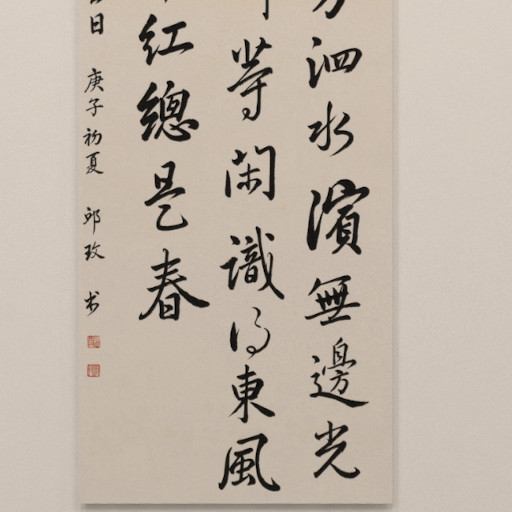 泗水濱無邊光
等閑識得東風
紅總是春
日 庚子初夏 邱玫 书